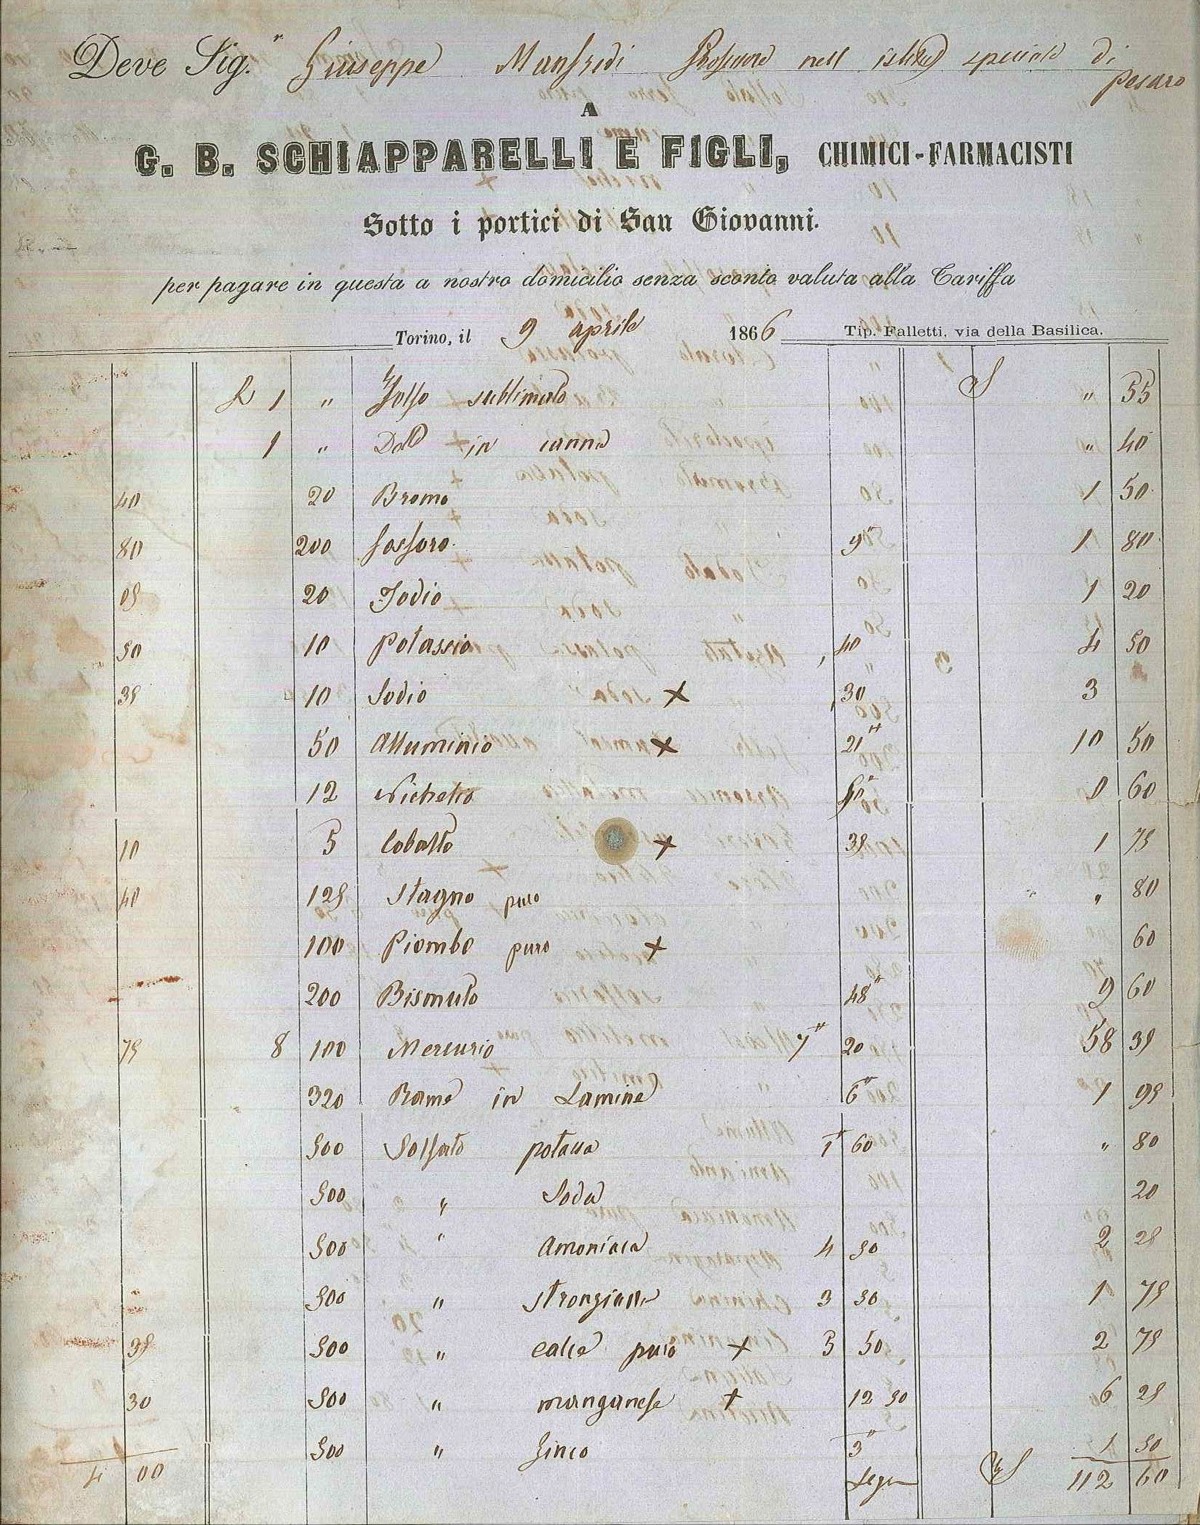 Deve Sig.r Giuseppe Manfredi Professore nell' speciale di
Pesaro
A
G. B. SCHIAPPARELLI E FIGLI, CHIMICI-FARMACISTI
Sotto i portici di San Giovanni.
per pagare in questa a nostro domicilio senza sconto valuta alla Tariffa
Torino, il 9 aprile 1866 Tip. Falletti, via della Basilica.
1 " Zolfo sublimato " 55
1 " Do in canne " 40
40 20 Bromo 1 50
80 200 fosforo 9" 1 80
05 20 Jodio 1 20
50 10 Potassio 40 4 50
35 10 Sodio x 30 3
50 Alluminio x 21" 10 50
12 Nichelio 60
10 5 Cobalto x 35 1 75
40 125 Stagno puro " 80
100 Piombo puro x 60
200 Bismuto 48" 9 60
75 8 100 Mercurio 7" 20 58 35
320 Rame in Lamine 6" 1 95
500 Solfato potassa 1" 60 " 80
500 " Soda 20
500 " Amoniaca 4 50 2 25
500 " stronziana 3 50 1 75
35 500 " calce puro x 5 50 2 75
30 500 " manganese x 12 50 6 25
500 " Zinco 3" 1 50
4 00 Segue 112 60